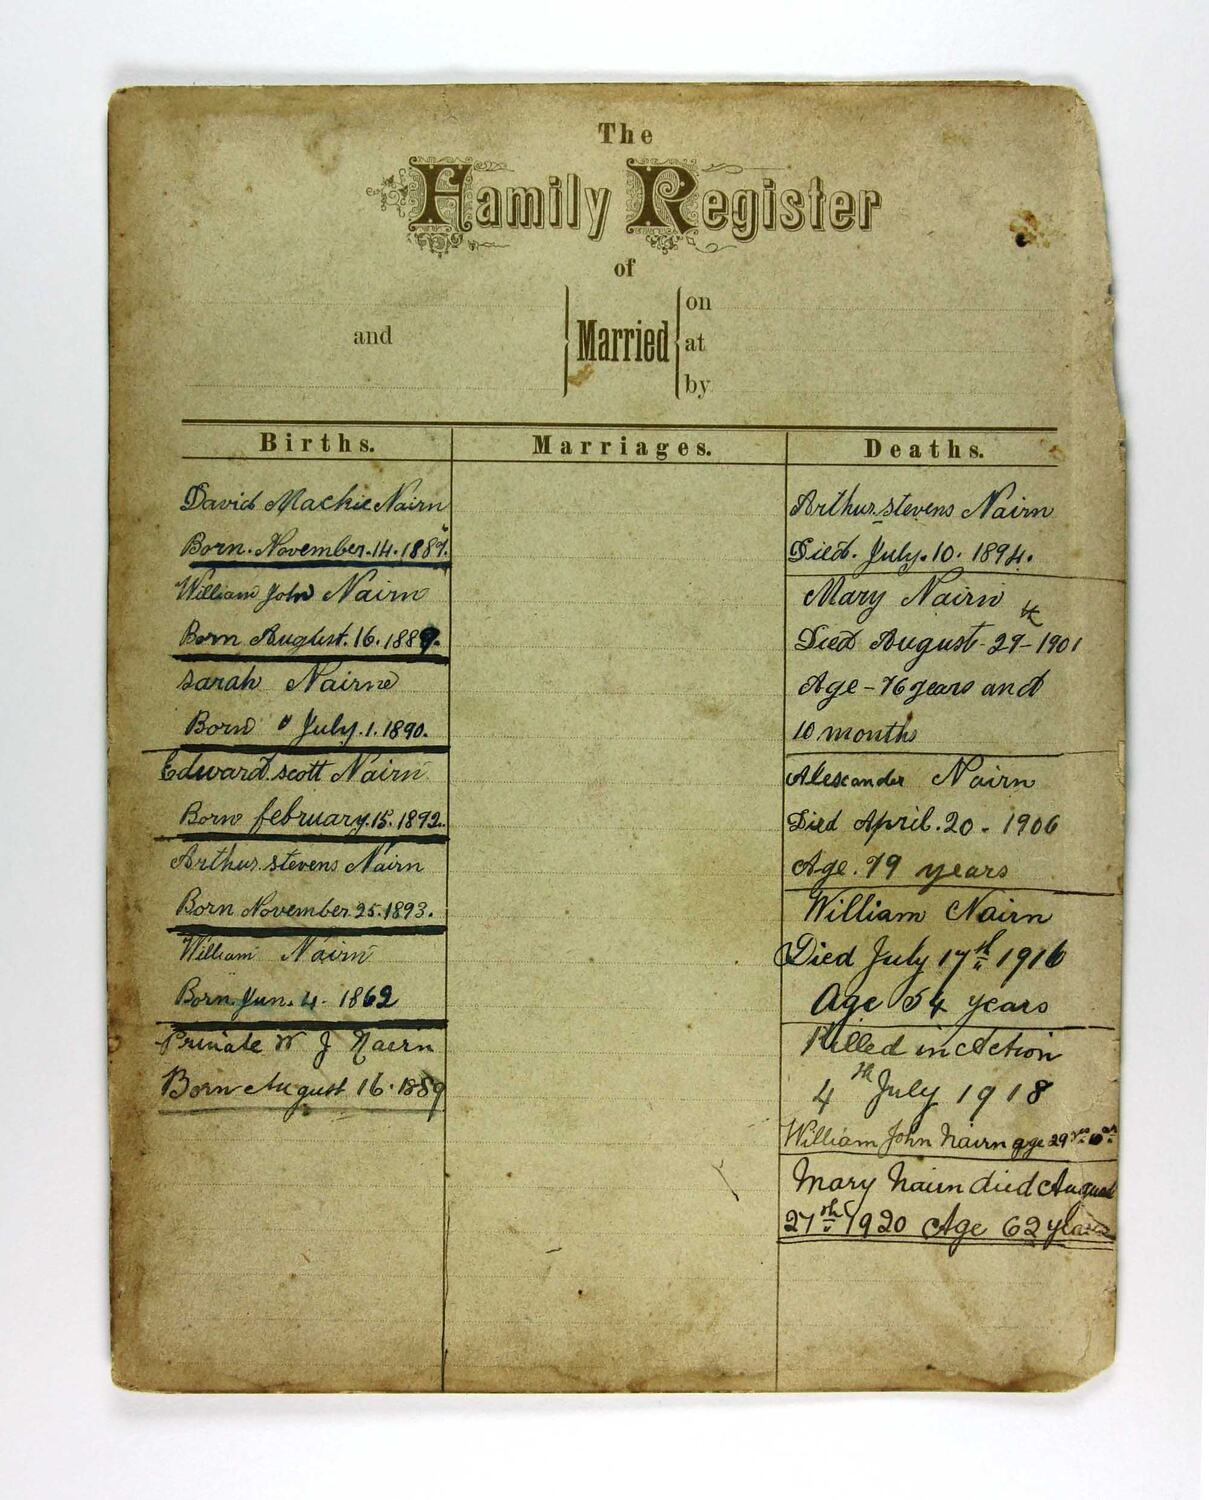 The
Family Register
of
and
Married
on
at
by
Births.
David Mackie Nairn
Born. November. 14. 1887.
William John Nairn
Born August. 16. 1889.
Sarah Nairne
Born July. 1. 1890.
Edward. scott Nairn
Born february. 15. 1892.
Arthur. stevens Nairn
Born November 25. 1893.
William Nairn
Born. Jun. 4. 1862
Private W J Nairn
Born August 16. 1889
Marriages.
Deaths.
Arthur. stevens Nairn
Died. July. 10. 1894.
Mary Nairn
Died August - 29 - 1901
Age - 76 years and
10 months
Alexander Nairn
Died April. 20. 1906
Age. 79 years
William Nairn
Died July 17th 1916
Age 54 years
Killed in Action
4th July 1918
William John Nairn age 29
Mary Nairn died August
27th 1920 Age 62 years